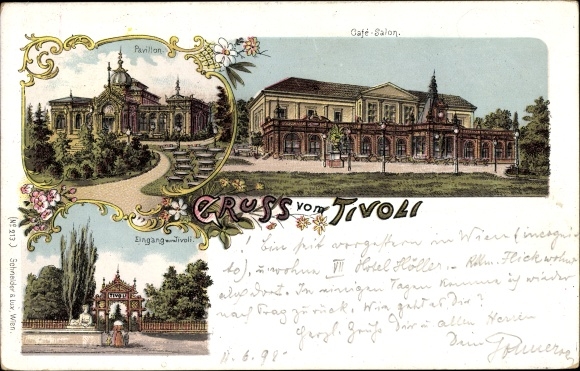 Pavillon.
Café-Salon.
GRUSS vom TIVOLI
Eingang zum Tivoli.
TIVOLI
(No 213.) Schneider & Lux, Wien.
! Bin seit vorgestern in Wien (incognito), u. wohne VII Hotel Höller
dort. In einigen Tagen komme ich wieder
nach Prag zurück. Wie geht es Dir?
Herzl. Grüße Dir u. allen
Dein
11.6.98